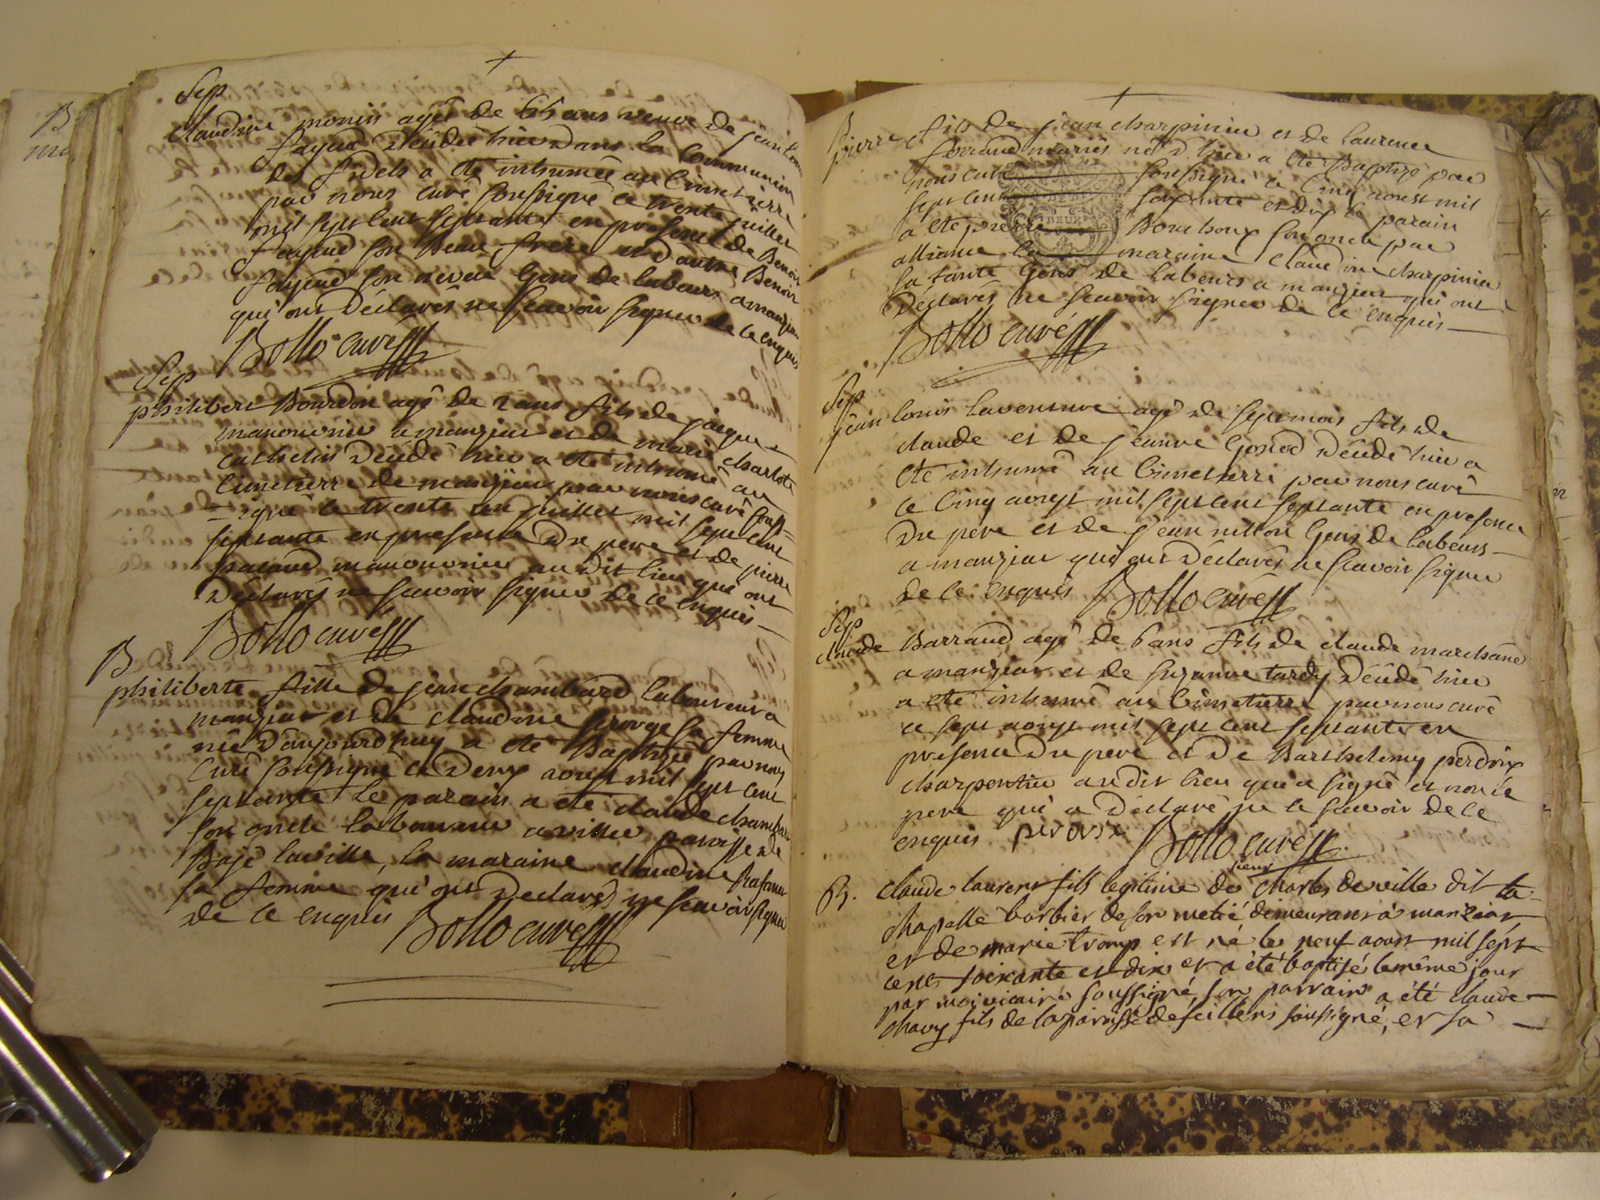 Sep
Claudine monin agé de 66 ans veuve de
fayeud décédée hier dans la Communion
des fidels a été inhumée au Cimetierre
par nous curé soussigné ce trente juillet
mil sept cent septante en présence de Benoit
fayeud son beau frere et d'autre Benoit
fayeud son neveu Gens de labeurs a manziat
qui ont déclarés ne scavoir signer de ce enquis
Bollo curé
Sep
philibert Bourdon agé de 2 ans fils de jaque
manouvrier a manziat et de marie charlote
Cathelin décédé hier a été inhumé au
Cimetierre de manziat par nous curé sous=
=signé le trente un juillet mil sept cent
septante en presence du pere et de pierre
manouvrier au dit lieu qui ont
déclarés ne scavoir signer de ce enquis
Bollo curé
B
philiberte fille de jean chambard laboureur a
manziat et de claudine sa femme
née d'aujourd'huy a été Baptizé par nous
Curé soussigné ce deux aoust mil sept cent
septante le parain a été claude chambard
son oncle laboureur a ville paroisse de
Bagé la ville, la maraine claudine
sa femme qui ont déclaré ne scavoir signer
de ce enquis Bollo curé
B
pierre fils de jean charpinie et de laurence
ferrand mariés né d'hier a été Baptizé par
nous curé soussigné ce Cinq aoust mil
sept cent soixante et dix le parain
a été pierre Bourboux son oncle par
alliance la maraine claudine charpinie
sa tante Gens de labeurs a manziat qui ont
déclarés ne scavoir signer de ce enquis
Bollo curé
Sep
jean louis laventure agé de sept mois fils de
claude et de jeanne décédé hier a
été inhumé au Cimetierre par nous curé
ce Cinq aoust mil sept cent septante en presence
du pere et de jean Gens de labeurs
a manziat qui ont déclarés ne scavoir signer
de ce enquis Bollo curé
Sep
claude Barraud agé de 6 ans fils de claude marchand
a manziat et de suzanne tardy décédé hier
a été inhumé au Cimetierre par nous curé
ce sept aoust mil sept cent septante en
présence du pere et de Barthelemy perdrix
charpentier au dit lieu qui a signé et non le
pere qui a déclaré ne le scavoir de ce
enquis perdrix Bollo curé
B. claude laurent fils legitime de sieur charles deville dit la
chapelle barbier de son metié demeurant a manziat
et de marie tromp est né le neuf aoust mil sept
cent soixante et dix et a été baptisé le même jour
par moi vicaire soussigné son parrain a été claude
chavy fils de la paroisse de feillens soussigné, et sa